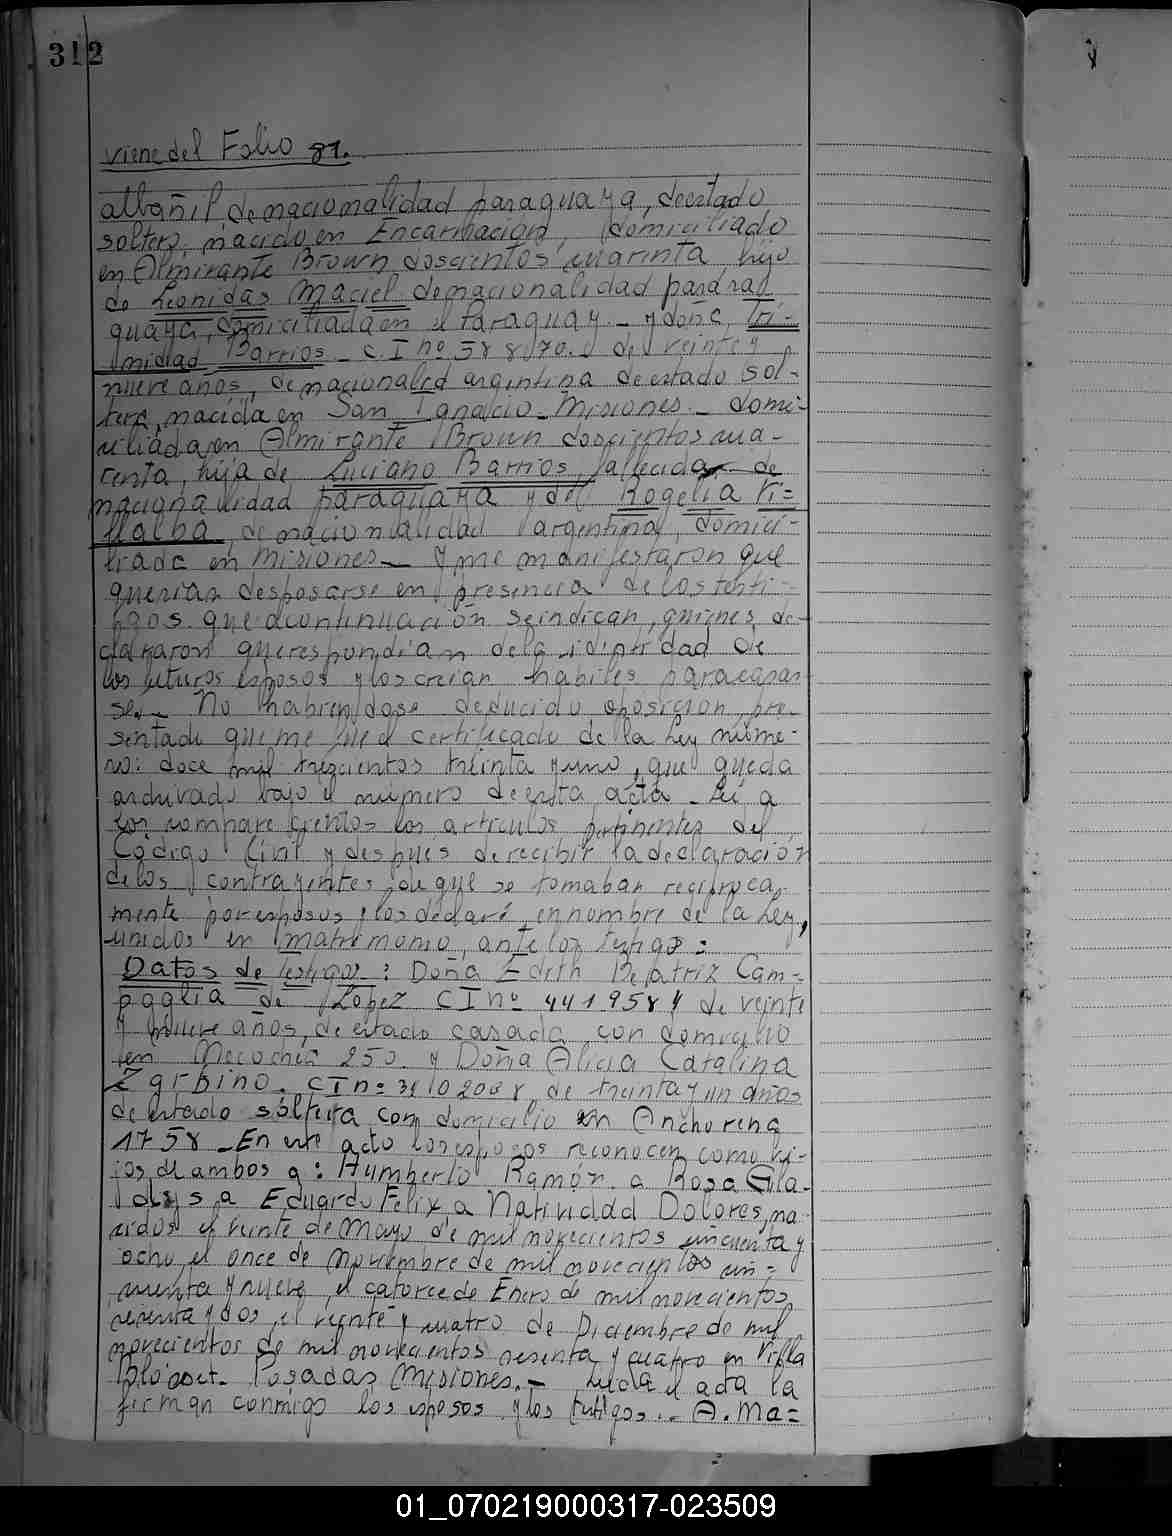 312
viene del Folio 87.
albañil de nacionalidad paraguaya, de estado
soltero, nacido en Encarnación, domiciliado
en Almirante Brown doscientos cuarinta hijo
de Leonidas Maciel de nacionalidad
guaya, domiciliada en el Paraguay._ y doña, Tri-
nidad Barrios_ C. I nº 588870. de veinte y
nueve años, de nacionalid argentina de estado sol-
tera, nacida en San Ignacio_Misiones._ domi-
ciliada en Almirante Brown doscientos cua-
renta, hija de Luciano Barrios, fallecida de
nacionalidad paraguaya y de Rogelia Vi=
llalba, de nacionalidad argentina, domici-
liada en Misiones_ Y me manifestaron que
querian desposarse en presencia de los testi-
gos que acontinuación se indican, quienes de-
clararon que respondian de la identidad de
los futuros esposos y los creian habiles para casar
se._ No habiendose deducido oposición, pre-
sentado que me fue el certificado de la Ley núme-
ro: doce mil trescientos treinta y uno, que queda
archivado bajo el número de esta acta_ Leí a
los comparecientes los articulos pertinentes del
Código Civil y después de recibir la declaración
de los contrayentes, de que se tomaban reciproca-
mente por esposos, los declaré, en nombre de la Ley,
unidos en matrimonio, ante los testigos:
Datos de testigos: Doña Edith Beatriz Cam=
paglia de Lopez C I nº 4419584 de veinte
y nueve años, de estado casada, con domicilio
en Necochea 250. y Doña Alicia Catalina
Zarbino. C I n= de treinta y un años
de estado soltera con domicilio en Anchorena
1758_En este acto los esposos reconocen como hi-
jos de ambos a: Humberto Ramón, a Rosa Gla-
dys, a Eduardo Felix a Natividad Dolores, na
cidos el veinte de Mayo de mil novecientos cincuenta y
ocho, el once de noviembre de mil novecientos cin=
cuenta y nueve, el catorce de Enero de mil novecientos
sesenta y dos, el veinte y cuatro de Diciembre de mil
novecientos de mil novecientos sesenta y cuatro en Villa
Posadas Misiones._ Leida el acta la
firman conmigo los esposos y los testigos.._ A. Ma=
01_070219000317-023509